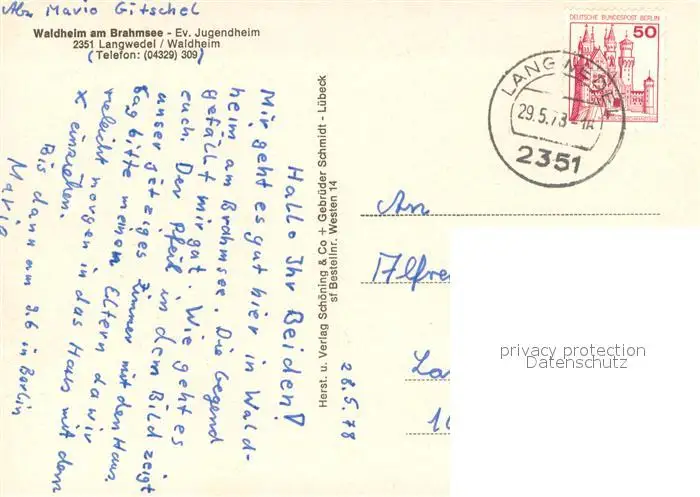 Abs Mario Gitschel
Waldheim am Brahmsee - Ev. Jugendheim
2351 Langwedel / Waldheim
(Telefon: (04329) 309)
28.5.78
Hallo Ihr Beiden!
Mir geht es gut hier in Wald-
heim am Brahmsee. Die Gegend
gefällt mir gut. Wie geht es
euch. Der Pfeil in dem Bild zeigt
unser jetziges Zimmer mit den Haus.
sag bitte meinen Eltern da wir
vieleicht morgen in das Haus mit dem
x einziehen.
Bis dann am 9.6 in Berlin
Mario
Herst. u. Verlag Schöning & Co + Gebrüder Schmidt - Lübeck
sf Bestellnr. Westen 14
DEUTSCHE BUNDESPOST BERLIN
50
LANGWEDEL
29.5.78
2351
An
Alfre
La
10
privacy protection
Datenschutz